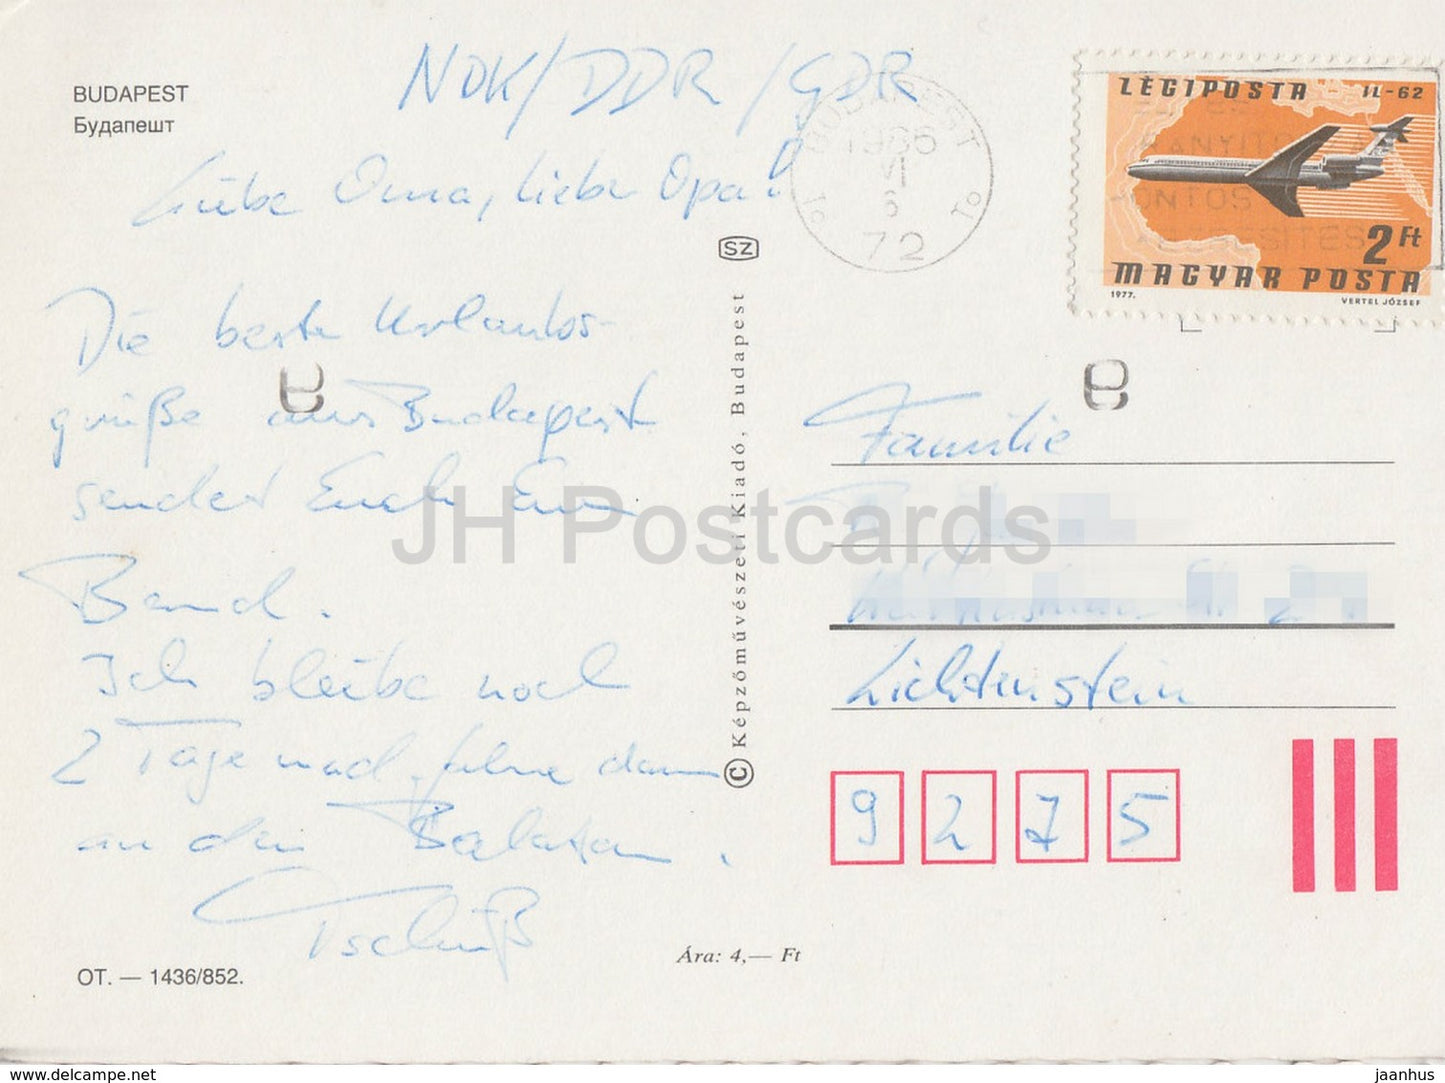 BUDAPEST
Будапешт
NDK/DDR/GDR
Liebe Oma, lieber Opa!
Die besten Urlaubs-
grüße aus Budapest
sendet Euch Euer
Bernd.
Ich bleibe noch
2 Tage und fahre dann
an den Balaton.
Tschüß
OT. — 1436/852.
SZ
© Képzőművészeti Kiadó, Budapest
Ára: 4,— Ft
BUDAPEST
1986
VI
72
LÉGIPOSTA IL-62
2 Ft
MAGYAR POSTA
1977. VERTEL JÓZSEF
Familie
Lichtenstein
9275
JH Postcards
www.delcampe.net
jaanhus